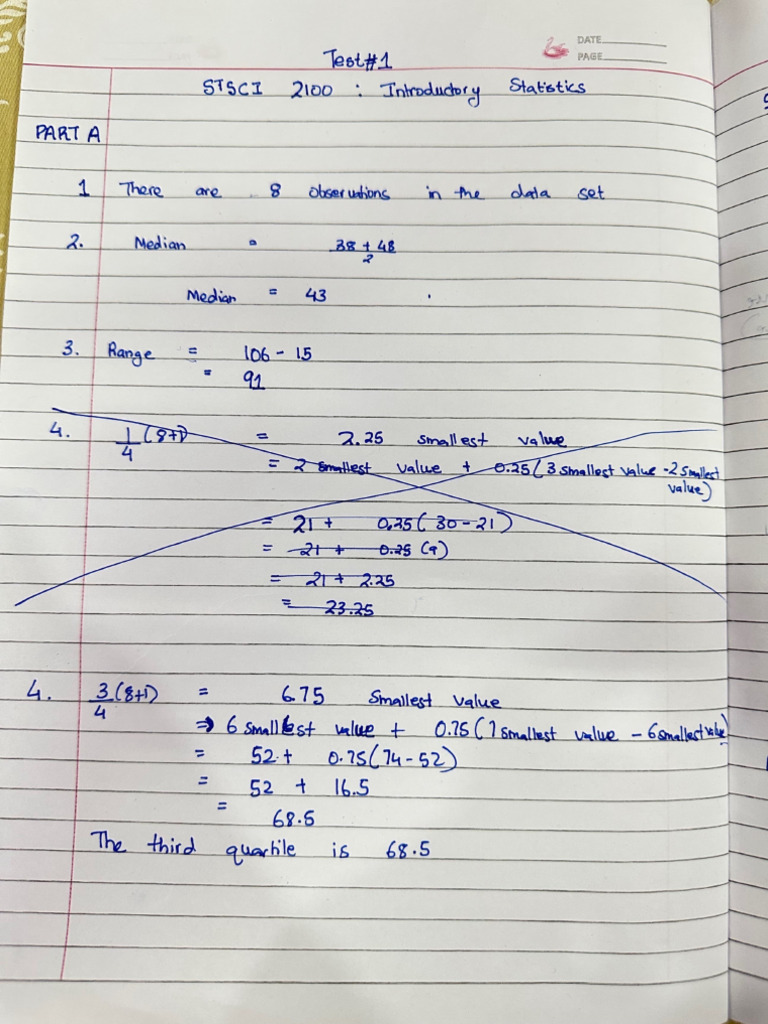 DATE
PAGE
Test#1
STSCI 2100 : Introductory Statistics
PART A
1 There are 8 observations in the data set
2. Median = 38 + 48
2
Median = 43
3. Range = 106 - 15
= 91
4. 1 (8+1) = 2.25 smallest value
4
= 2 smallest value + 0.25 ( 3 smallest value - 2 smallest
value)
= 21 + 0.25 ( 30 - 21 )
= 21 + 0.25 (9)
= 21 + 2.25
= 23.25
4. 3 (8+1) = 6.75 Smallest Value
4
⇒ 6 smallest value + 0.75 ( 7 smallest value - 6 smallest value)
= 52 + 0.75 (74 - 52)
= 52 + 16.5
= 68.5
The third quartile is 68.5